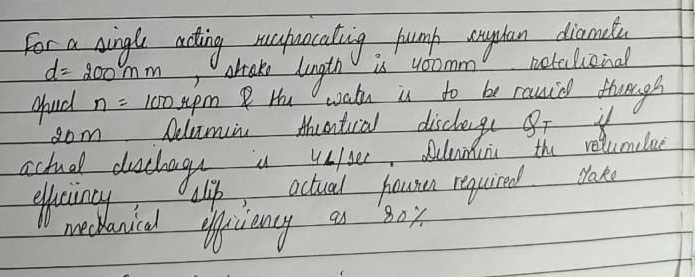 For a single acting reciprocating pump cryptan diameter
d= 200mm , stroke length is 400mm rotational
speed n = 100 rpm & the water is to be raised through
20m Determine theortical discharge QT if
actual discharge is 4L/sec . Determine the volumetric
efficiency, slip, actual power required. Take
mechanical efficiency as 80%